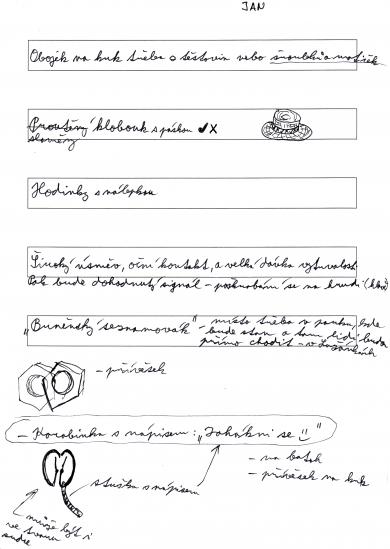 JAN
Obojek na krk třeba s těstovin nebo šroubků a matiček
Proutěný klobouk s páskou ✓ X
slaměný
Hodinky s nálepkou
Široký úsměv, oční kontakt, a velká dávka vytrvalosti
Pak bude dohodnutý signál - poškrabám se na hrudi
„Brněnský seznamovák" - místo třeba v parku, kde
- bude stan a tam lidi budou
přímo chodit - v Lužánkách
- přívěsek
- Karabinka s nápisem: „Zahákni se ☺"
- na batoh
- přívěsek na krk
stužka s nápisem
může být i
ve tvaru
srdce